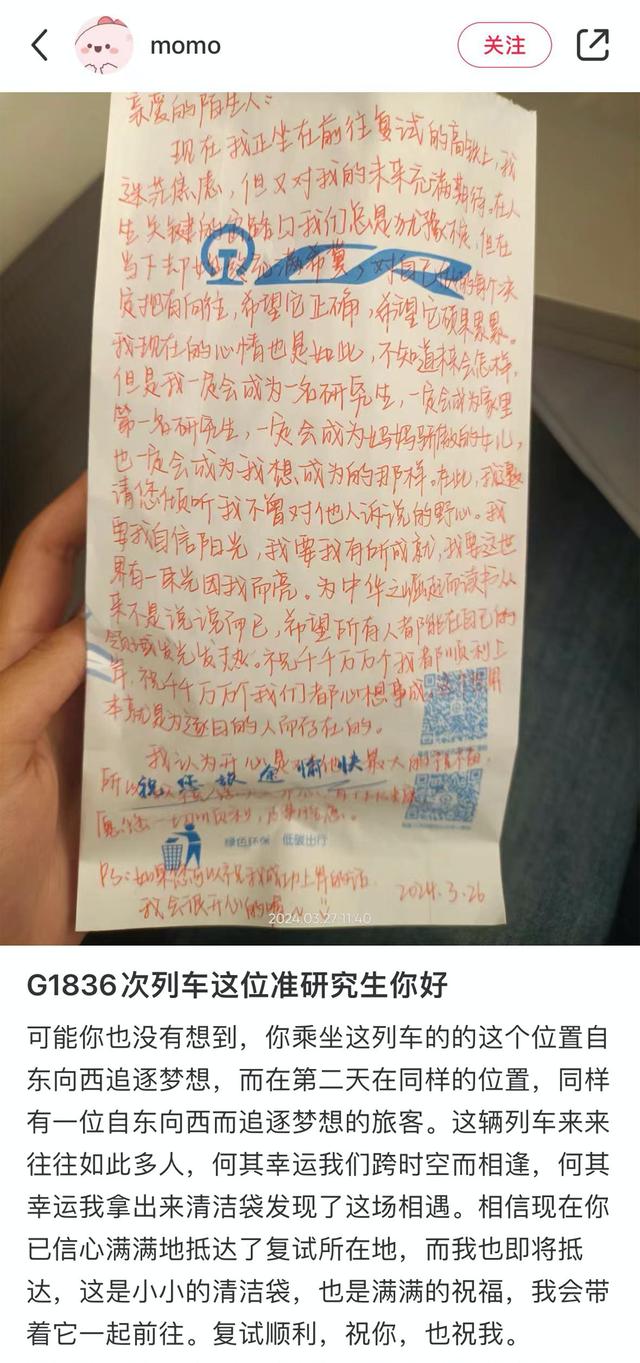 momo
关注
亲爱的陌生人:
现在我正坐在前往复试的高铁上,我
迷茫焦虑,但又对我的未来充满期待。在人
生关键的岔路口我们总是犹豫不决,但在
当下却始终充满希冀,对自己做的每个决
定抱有向往,希望它正确,希望它硕果累累。
我现在的心情也是如此,不知道未来会怎样,
但是我一定会成为一名研究生,一定会成为家里
第一名研究生,一定会成为妈妈骄傲的女儿,
也一定会成为我想成为的那样。在此,我邀
请您倾听我不曾对他人诉说的野心。我
要我自信阳光,我要我有所成就,我要这世
界有一束光因我而亮。为中华之崛起而读书从
来不是说说而已,希望所有人都能在自己的
领域发光发热。祝千千万万个我都顺利上
岸,祝千千万万个我们都心想事成。
本就是为逐日的人而存在的。
我认为开心是对其他最大的
所以祝您旅途愉快
愿您一切顺利
绿色环保 低碳出行
Ps:如果您可以祝我成功上岸的话
我会很开心的噢~
2024.3.26
2024.03.27 11:40
G1836次列车这位准研究生你好
可能你也没有想到,你乘坐这列车的的这个位置自
东向西追逐梦想,而在第二天在同样的位置,同样
有一位自东向西而追逐梦想的旅客。这辆列车来来
往往如此多人,何其幸运我们跨时空而相逢,何其
幸运我拿出来清洁袋发现了这场相遇。相信现在你
已信心满满地抵达了复试所在地,而我也即将抵
达,这是小小的清洁袋,也是满满的祝福,我会带
着它一起前往。复试顺利,祝你,也祝我。